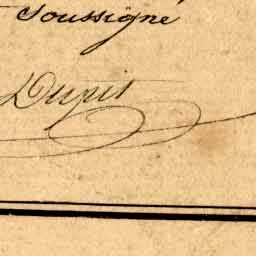 soussigné
Dupis